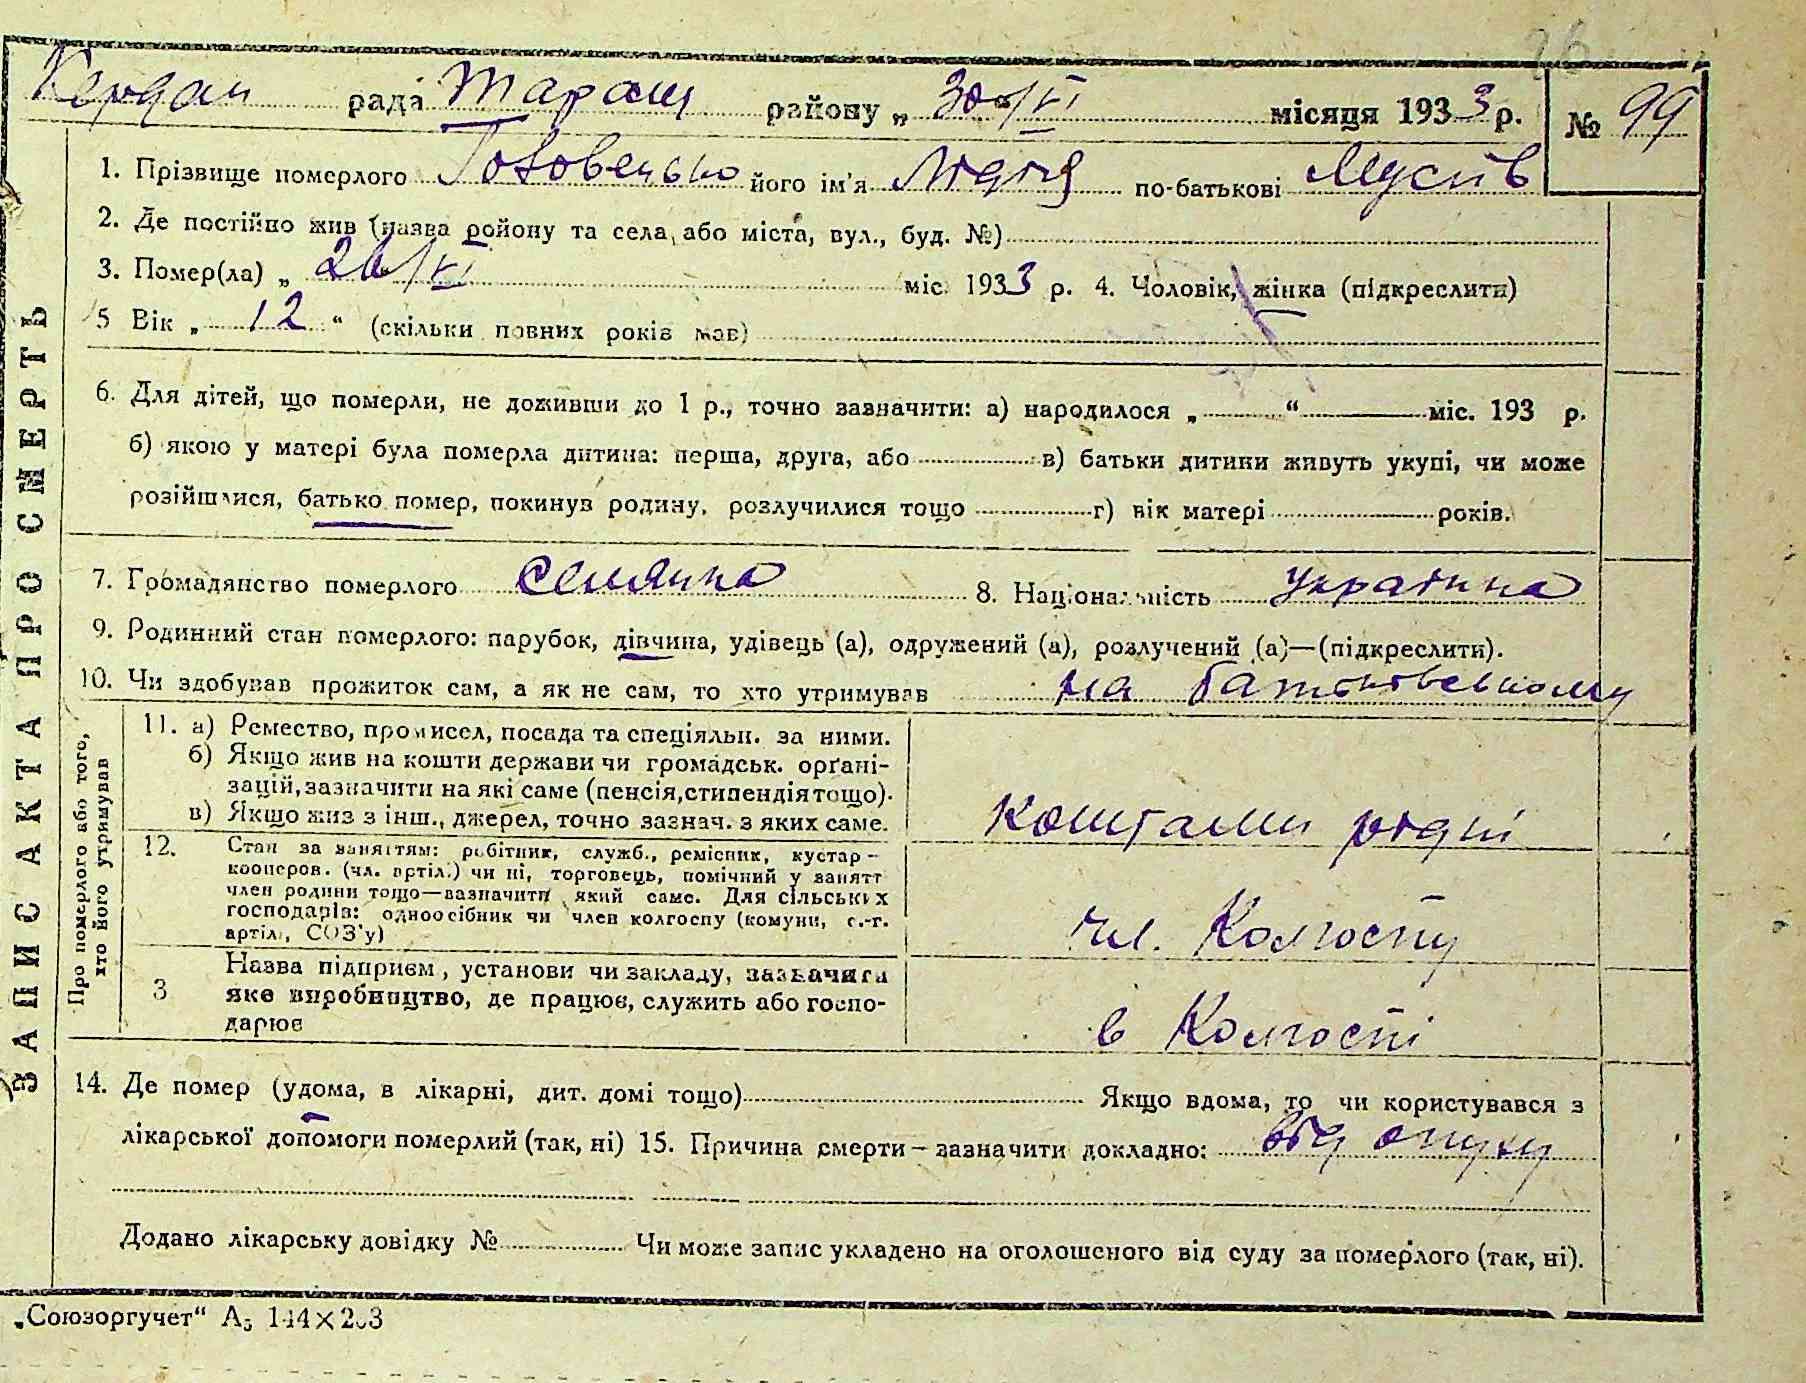 26
Кердан рада Таращ району „ 30/VI місяця 1933 р. № 99
1. Прізвище померлого його ім'я Лідія по-батькові Мусіїв
2. Де постійно жив (назва ройону та села, або міста, вул., буд. №)
3. Помер(ла) „ 26/VI міс. 1933 р. 4. Чоловік, жінка (підкреслити)
5 Вік „ 12 “ (скільки повних років мав)
6. Для дітей, що померли, не доживши до 1 р., точно зазначити: а) народилося „ “ міс. 193 р.
б) якою у матері була померла дитина: перша, друга, або в) батьки дитини живуть укупі, чи може
розійшлися, батько помер, покинув родину, розлучилися тощо г) вік матері років.
7. Громадянство померлого селянка 8. Національність українка
9. Родинний стан померлого: парубок, дівчина, удівець (а), одружений (а), розлучений (а)—(підкреслити).
10. Чи здобував прожиток сам, а як не сам, то хто утримував на батьковському
ЗАПИС АКТА ПРО СМЕРТЬ
Про померлого або того,
хто його утримував
11. а) Ремество, промисел, посада та спеціяльн. за ними.
б) Якщо жив на кошти держави чи громадськ. орґані-
зацій, зазначити на які саме (пенсія, стипендія тощо).
в) Якщо жив з інш., джерел, точно зазнач. з яких саме.
коштами рідні
12. Стан за заняттям: робітник, служб., ремісник, кустар –
кооперов. (чл. артіл.) чи ні, торговець, помічний у занятт
член родини тощо—зазначити який саме. Для сільських
господарів: одноосібник чи член колгоспу (комуни, с.-г.
артілі, СОЗ'у)
чл. Колгоспу
3 Назва підприєм, установи чи закладу, зазначити
яке виробництво, де працює, служить або госпо-
дарює
в Колгоспі
14. Де помер (удома, в лікарні, дит. домі тощо) Якщо вдома, то чи користувався з
лікарської допомоги померлий (так, ні) 15. Причина смерти – зазначити докладно: від опуху
Додано лікарську довідку № Чи може запис укладено на оголошеного від суду за померлого (так, ні).
„Союзоргучет“ А5